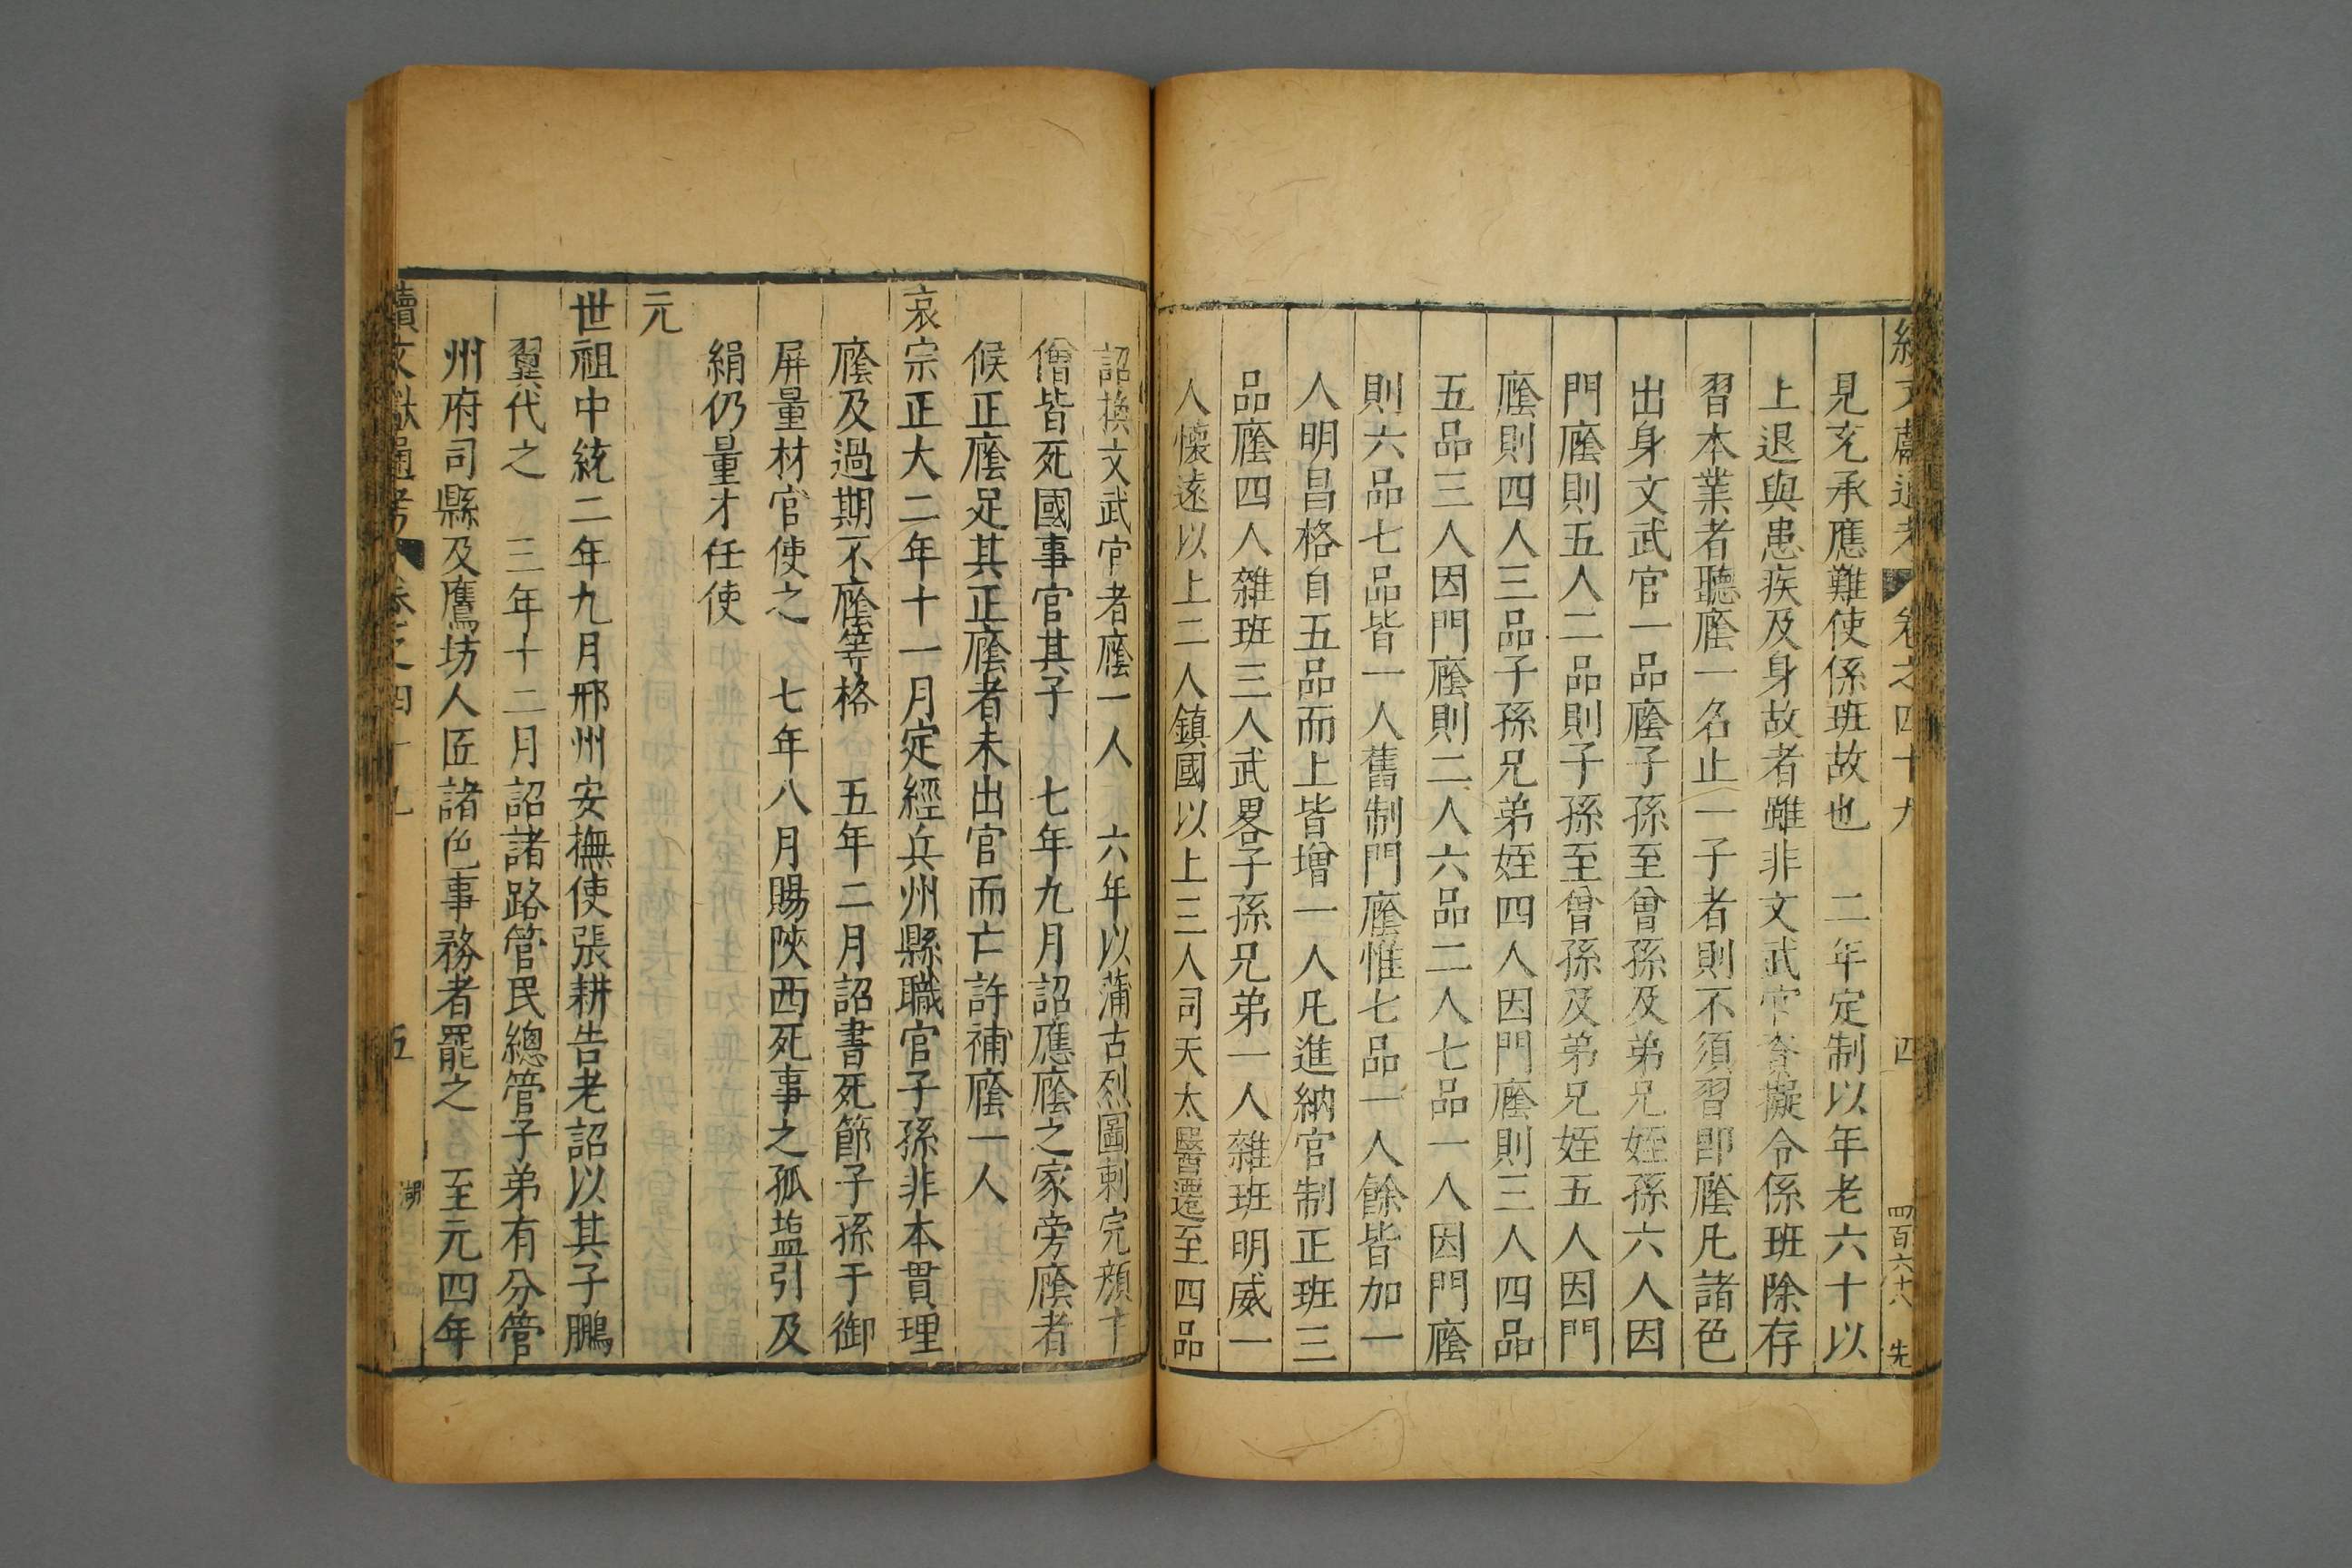 續文獻通考 卷之四十九 四 四百六十八 先
見充承應難使係班故也 二年定制以年老六十以
上退與患疾及身故者雖非文武官奏擬令係班除存
習本業者聽廕一名止一子者則不須習卽廕凡諸色
出身文武官一品廕子孫至曾孫及弟兄姪孫六人因
門廕則五人二品則子孫至曾孫及弟兄姪五人因門
廕則四人三品子孫兄弟姪四人因門廕則三人四品
五品三人因門廕則二人六品二人七品一人因門廕
則六品七品皆一人舊制門廕惟七品一人餘皆加一
人明昌格自五品而上皆增一人凡進納官制正班三
品廕四人雜班三人武畧子孫兄弟一人雜班明威一
人懷遠以上二人鎮國以上三人司天太醫遷至四品
詔換文武官者廕一人 六年以蒲古烈圖剌完顏十
僧皆死國事官其子 七年九月詔應廕之家旁廕者
候正廕足其正廕者未出官而亡許補廕一人
哀宗正大二年十一月定經兵州縣職官子孫非本貫理
廕及過期不廕等格 五年二月詔書死節子孫于御
屏量材官使之 七年八月賜陝西死事之孤塩引及
絹仍量才任使
元
世祖中統二年九月邢州安撫使張耕告老詔以其子鵬
翼代之 三年十二月詔諸路管民總管子弟有分管
州府司縣及鷹坊人匠諸色事務者罷之 至元四年
續文獻通考 卷之四十九 五 湖